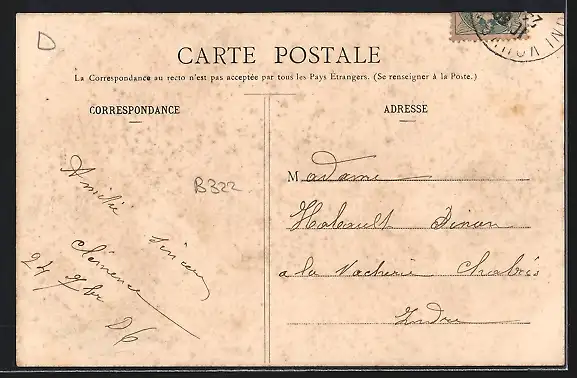 D
CARTE POSTALE
La Correspondance au recto n'est pas acceptée par tous les Pays Étrangers. (Se renseigner à la Poste.)
CORRESPONDANCE
ADRESSE
Amitié
sincere
Clémence
24 9bre
D6
B322
Madame
Dinan
a la Vacherie Chabris
Indre